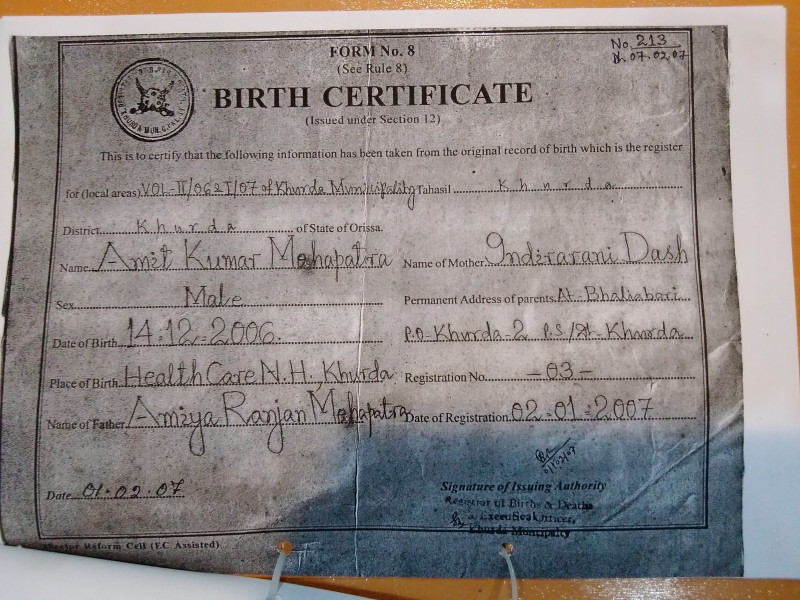 FORM No. 8
(See Rule 8)
No. 213
Dt. 07.02.07
BIRTH CERTIFICATE
(Issued under Section 12)
This is to certify that the following information has been taken from the original record of birth which is the register
for (local areas) VOL-II/062I/07 of Khurda Municipality Tahasil Khurda
District Khurda of State of Orissa.
Name Amit Kumar Mohapatra
Name of Mother Indirarani Dash
Sex Male
Permanent Address of parents At-Bhaliabari
Date of Birth 14.12.2006.
P.O-Khurda-2 P.S/Dt-Khurda
Place of Birth Health Care N.H. Khurda
Registration No. -03-
Name of Father Amiya Ranjan Mohapatra
Date of Registration 02.01.2007
01/02/07
Date 01.02.07
Signature of Issuing Authority
Registrar of Births & Deaths
Executive Officer,
Khurda Municipalty
Sector Reform Cell (E.C. Assisted)